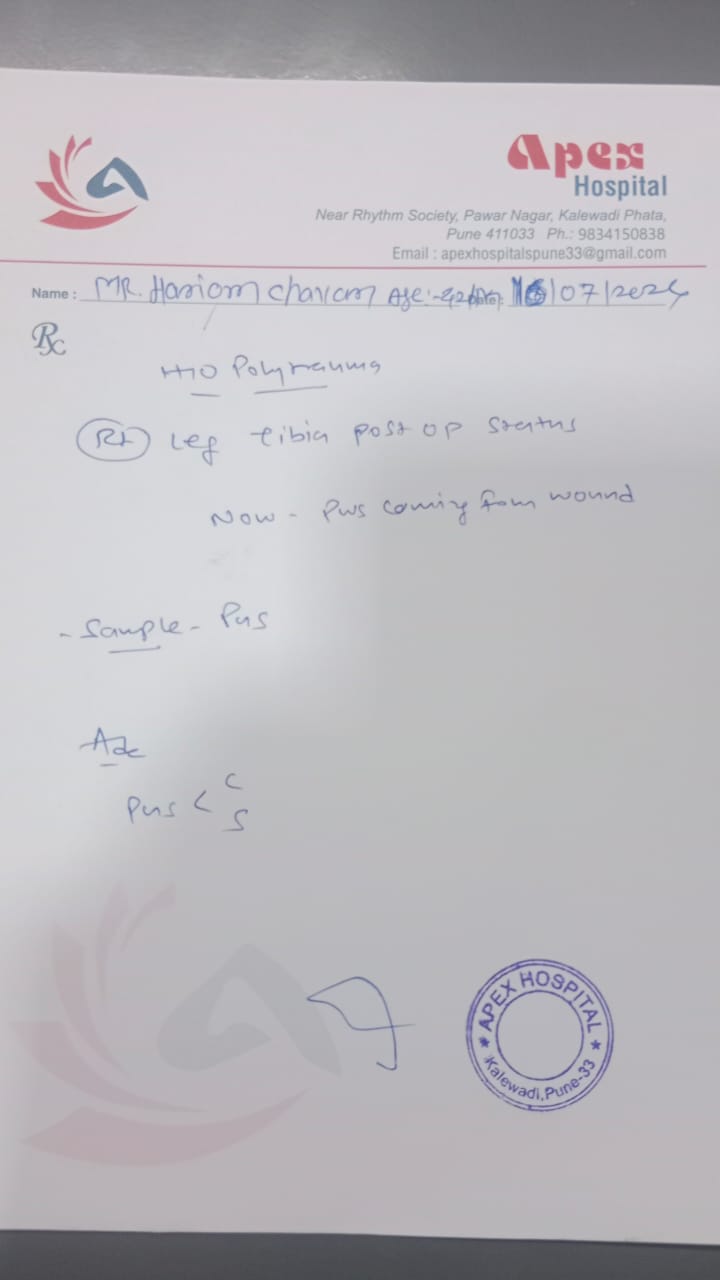 Apex
Hospital
Near Rhythm Society, Pawar Nagar, Kalewadi Phata,
Pune 411033 Ph.: 9834150838
Email : apexhospitalspune33@gmail.com
Name : MR. Hariom Chavan Age:- Date: /07/2024
Rx
H/O Polytrauma
Rt Leg tibia post op status
Now - Pus coming from wound
- Sample - Pus
Adv
Pus < C
S
APEX HOSPITAL
Kalewadi, Pune-33